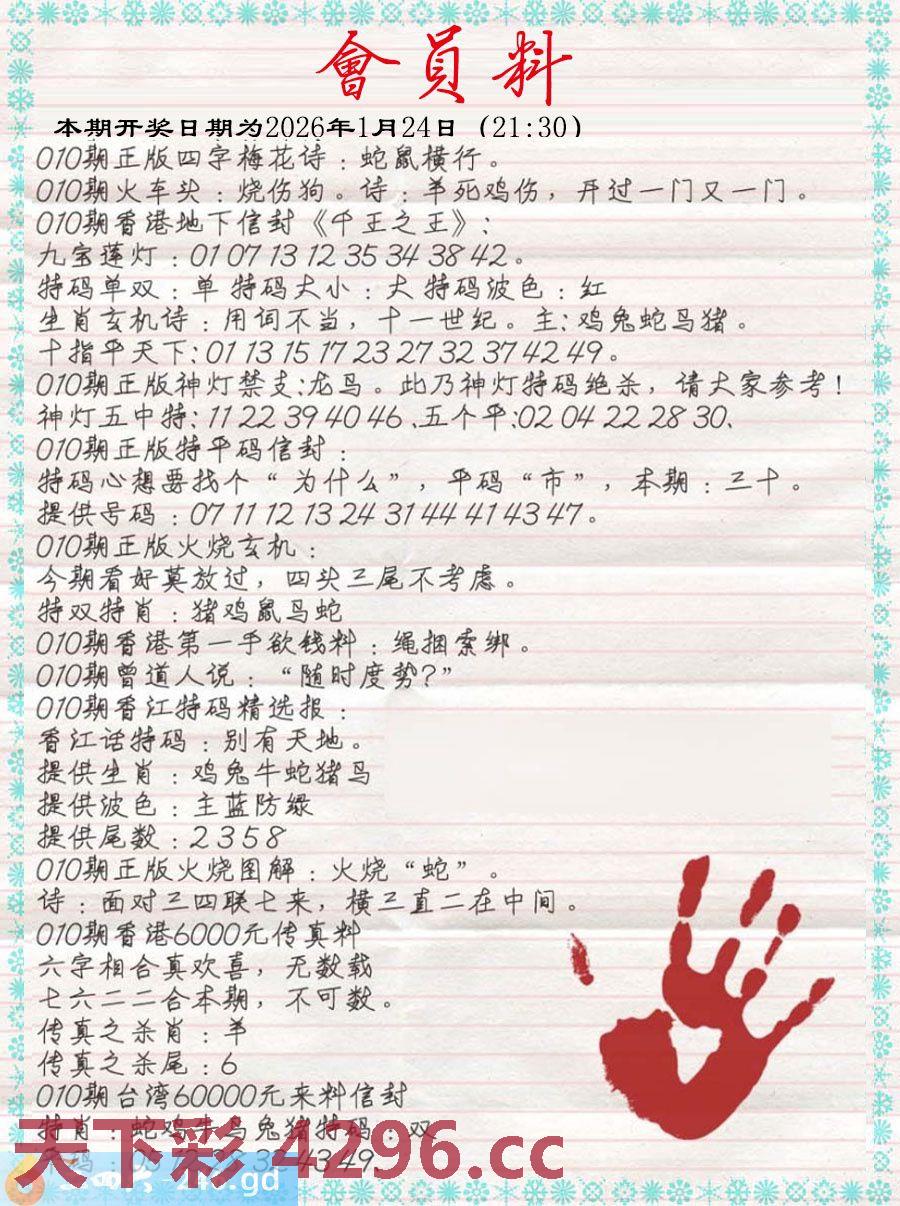 會員料
本期开奖日期为2026年1月24日（21:30）
010期正版四字梅花诗：蛇鼠横行。
010期火车头：烧伤狗。诗：羊死鸡伤，开过一门又一门。
010期香港地下信封《千王之王》：
九宝莲灯：01 07 13 12 35 34 38 42。
特码单双：单 特码大小：大 特码波色：红
生肖玄机诗：用词不当，十一世纪。主：鸡兔蛇马猪。
十指平天下：01 13 15 17 23 27 32 37 42 49。
010期正版神灯禁支：龙马。此乃神灯特码绝杀，请大家参考！
神灯五中特：11 22 39 40 46、五个平：02 04 22 28 30、
010期正版特平码信封：
特码心想要找个“为什么”，平码“市”，本期：三十。
提供号码：07 11 12 13 24 31 44 41 43 47。
010期正版火烧玄机：
今期看好莫放过，四头三尾不考虑。
特双特肖：猪鸡鼠马蛇
010期香港第一手欲钱料：绳捆索绑。
010期曾道人说：“随时度势？”
010期香江特码精选报：
香江话特码：别有天地。
提供生肖：鸡兔牛蛇猪马
提供波色：主蓝防绿
提供尾数：2 3 5 8
010期正版火烧图解：火烧“蛇”。
诗：面对三四联七来，横三直二在中间。
010期香港6000元传真料
六字相合真欢喜，无数载
七六二二合本期，不可数。
传真之杀肖：羊
传真之杀尾：6
010期台湾60000元来料信封
特肖：蛇鸡牛马兔猪特码：双
43 49、
天下彩 4296.cc
.gd